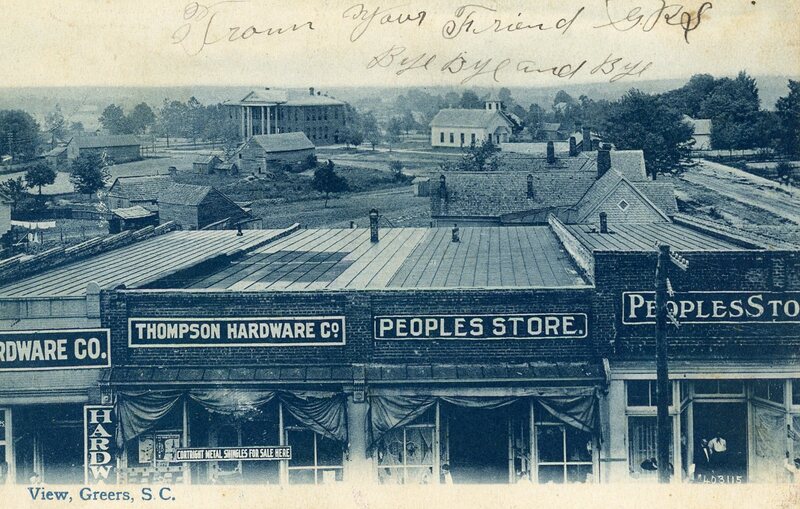 From Your Friend G.R.S
Bye Bye and Bye
THOMPSON HARDWARE Co.
PEOPLES STORE.
PEOPLES STO
RDWARE CO.
HARDW
CORTRIGHT METAL SHINGLES FOR SALE HERE
403115
View, Greers, S.C.